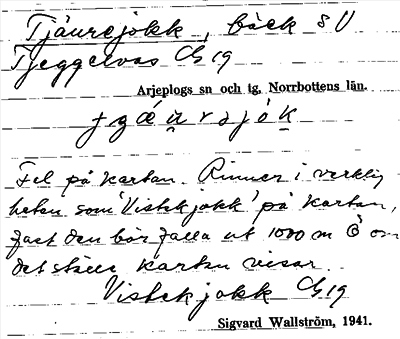 Tjäurejokk, bäck s V
Tjeggelvas G 19
Arjeplogs sn och tg, Norrbottens län.
Fel på kartan. Rinner i verklig
heten som 'Vistekjokk' på kartan,
fast den bör falla ut 1000 m Ö om
det ställe kartan visar.
Vistekjokk G 19
Sigvard Wallström, 1941.